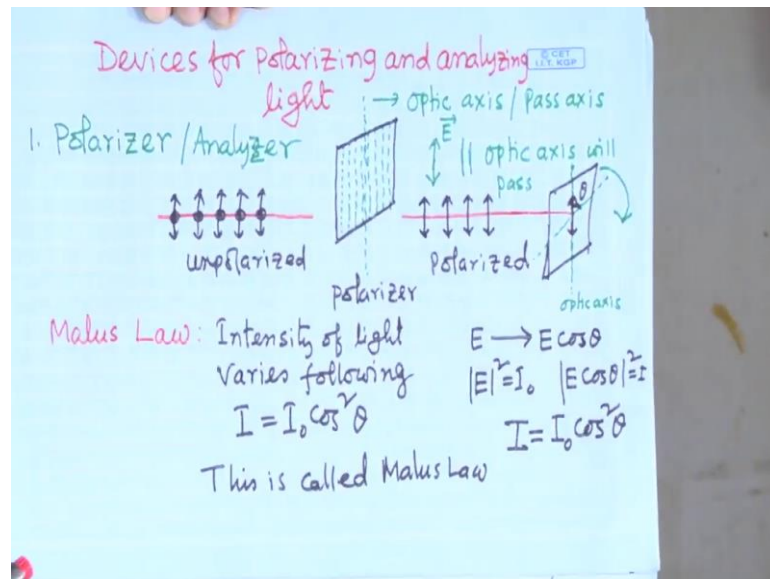 Devices for polarizing and analyzing
light
© CET
I.I.T. KGP
→ optic axis / Pass axis
1. Polarizer / Analyzer
E⃗
|| optic axis will
pass
θ
unpolarized
Polarized
polarizer
optic axis
Malus Law: Intensity of light
Varies following
I = I₀ cos²θ
This is called Malus Law
E → E cosθ
|E|² = I₀ |E cosθ|² = I
I = I₀ cos²θ